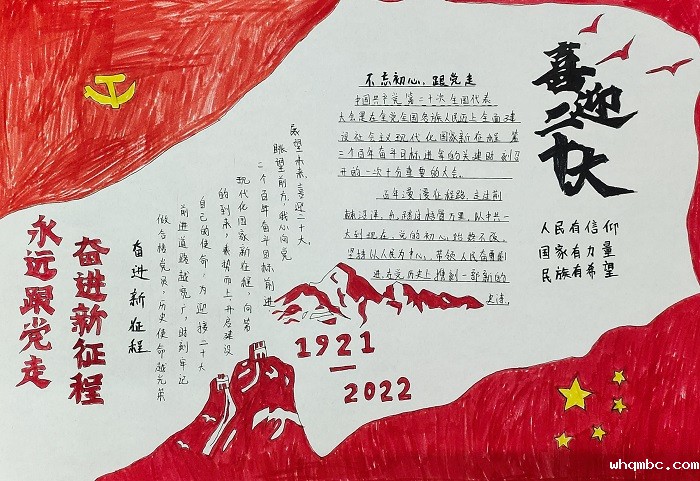 喜迎二十大
人民有信仰
国家有力量
民族有希望
不忘初心、跟党走
中国共产党第二十次全国代表
大会是在全党全国各族人民迈上全面建
设社会主义现代化国家新征程 第
二个百年奋斗目标进军的关键时刻召
开的一次十分重要的大会。
百年漫漫征程路,走过荆
中共一
大到现在,党的初心始终不改,
坚持以人民为中心,带领人民奋勇前
进,在党历史上镌刻一部新的
史诗。
展望未来,喜迎二十大。
眺望前方,我心向党
二个百年奋斗目标前进
现代化国家新征程,向第
的到来,乘势而上开启建设
自己的使命,为迎接二十大
前进道路越宽广,时刻牢记
做合格党员,历史使命越光荣
奋进新征程
奋进新征程
永远跟党走
1921
—
2022
whqmbc.com